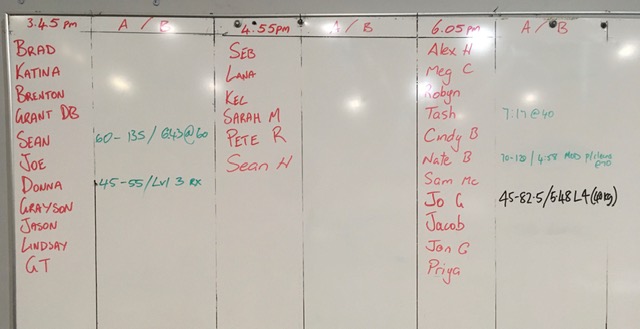 3.45pm A / B 4:55pm A / B 6.05pm A / B
BRAD
KATINA
BRENTON
GRANT DB
SEAN 60-135 / 6:43@60
JOE
DONNA 45-55/Lvl 3 RX
GRAYSON
JASON
LINDSAY
GT
SEB
LANA
KEL
SARAH M
PETE R
Sean H
Alex H
Meg C
Robyn
Tash 7:17@40
Cindy B
Nate B 70-120 / 4:58 MOD p/cleans
@70
Sam Mc
Jo G 45-82.5/5:48 L4 (40kg)
Jacob
Jon G
Priya